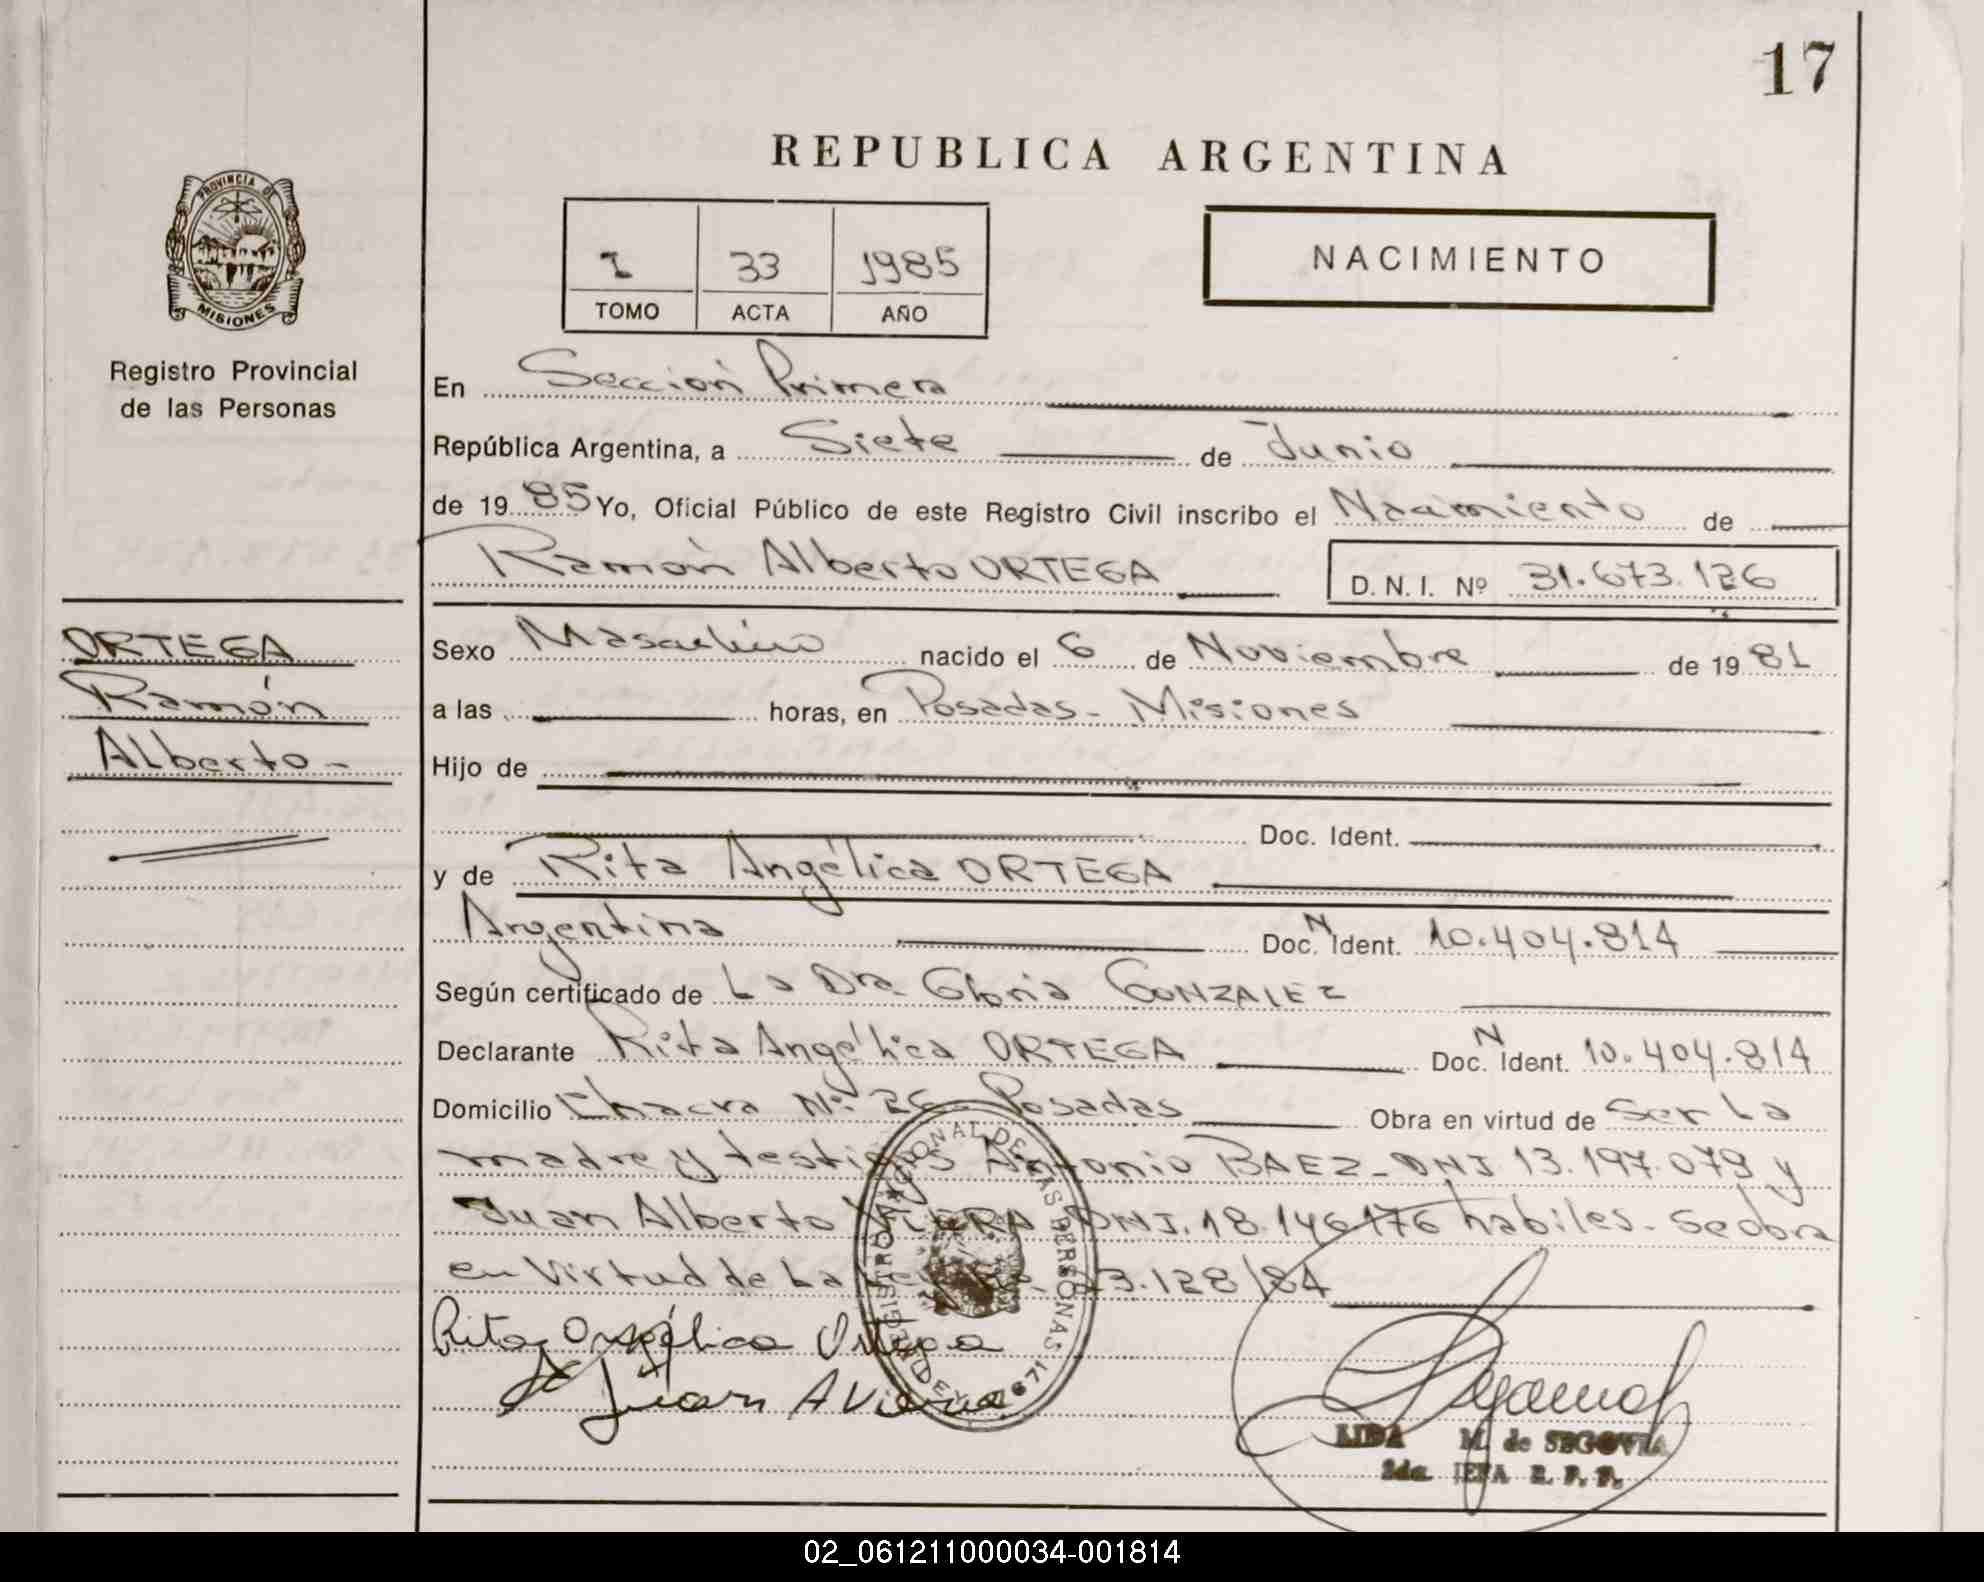 17
REPUBLICA ARGENTINA
PROVINCIA DE
MISIONES
Registro Provincial
de las Personas
I 33 1985
TOMO ACTA AÑO
NACIMIENTO
En Sección Primera
República Argentina, a Siete de Junio
de 1985 Yo, Oficial Público de este Registro Civil inscribo el Nacimiento de
Ramón Alberto ORTEGA D. N. I. Nº 31.673.126
ORTEGA
Ramón
Alberto-
Sexo Masculino nacido el 6 de Noviembre de 1981
a las horas, en Posadas- Misiones
Hijo de
Doc. Ident.
y de Rita Angélica ORTEGA
Argentina Doc. N Ident. 10.404.814
Según certificado de La Dra. Gloria GONZALEZ
Declarante Rita Angélica ORTEGA Doc. N Ident. 10.404.814
Domicilio Chacra Nº 26 Posadas Obra en virtud de Ser La
madre y testigos Antonio BAEZ-DNI 13.197.079 y
Juan Alberto DNI. 18.146176 habiles- Se obra
en Virtud de La 23.128/84
Rita Angélica Ortega
Juan A Viera
LIDA M. de SEGOVIA
2da. JEFA R. P. P.
02_061211000034-001814